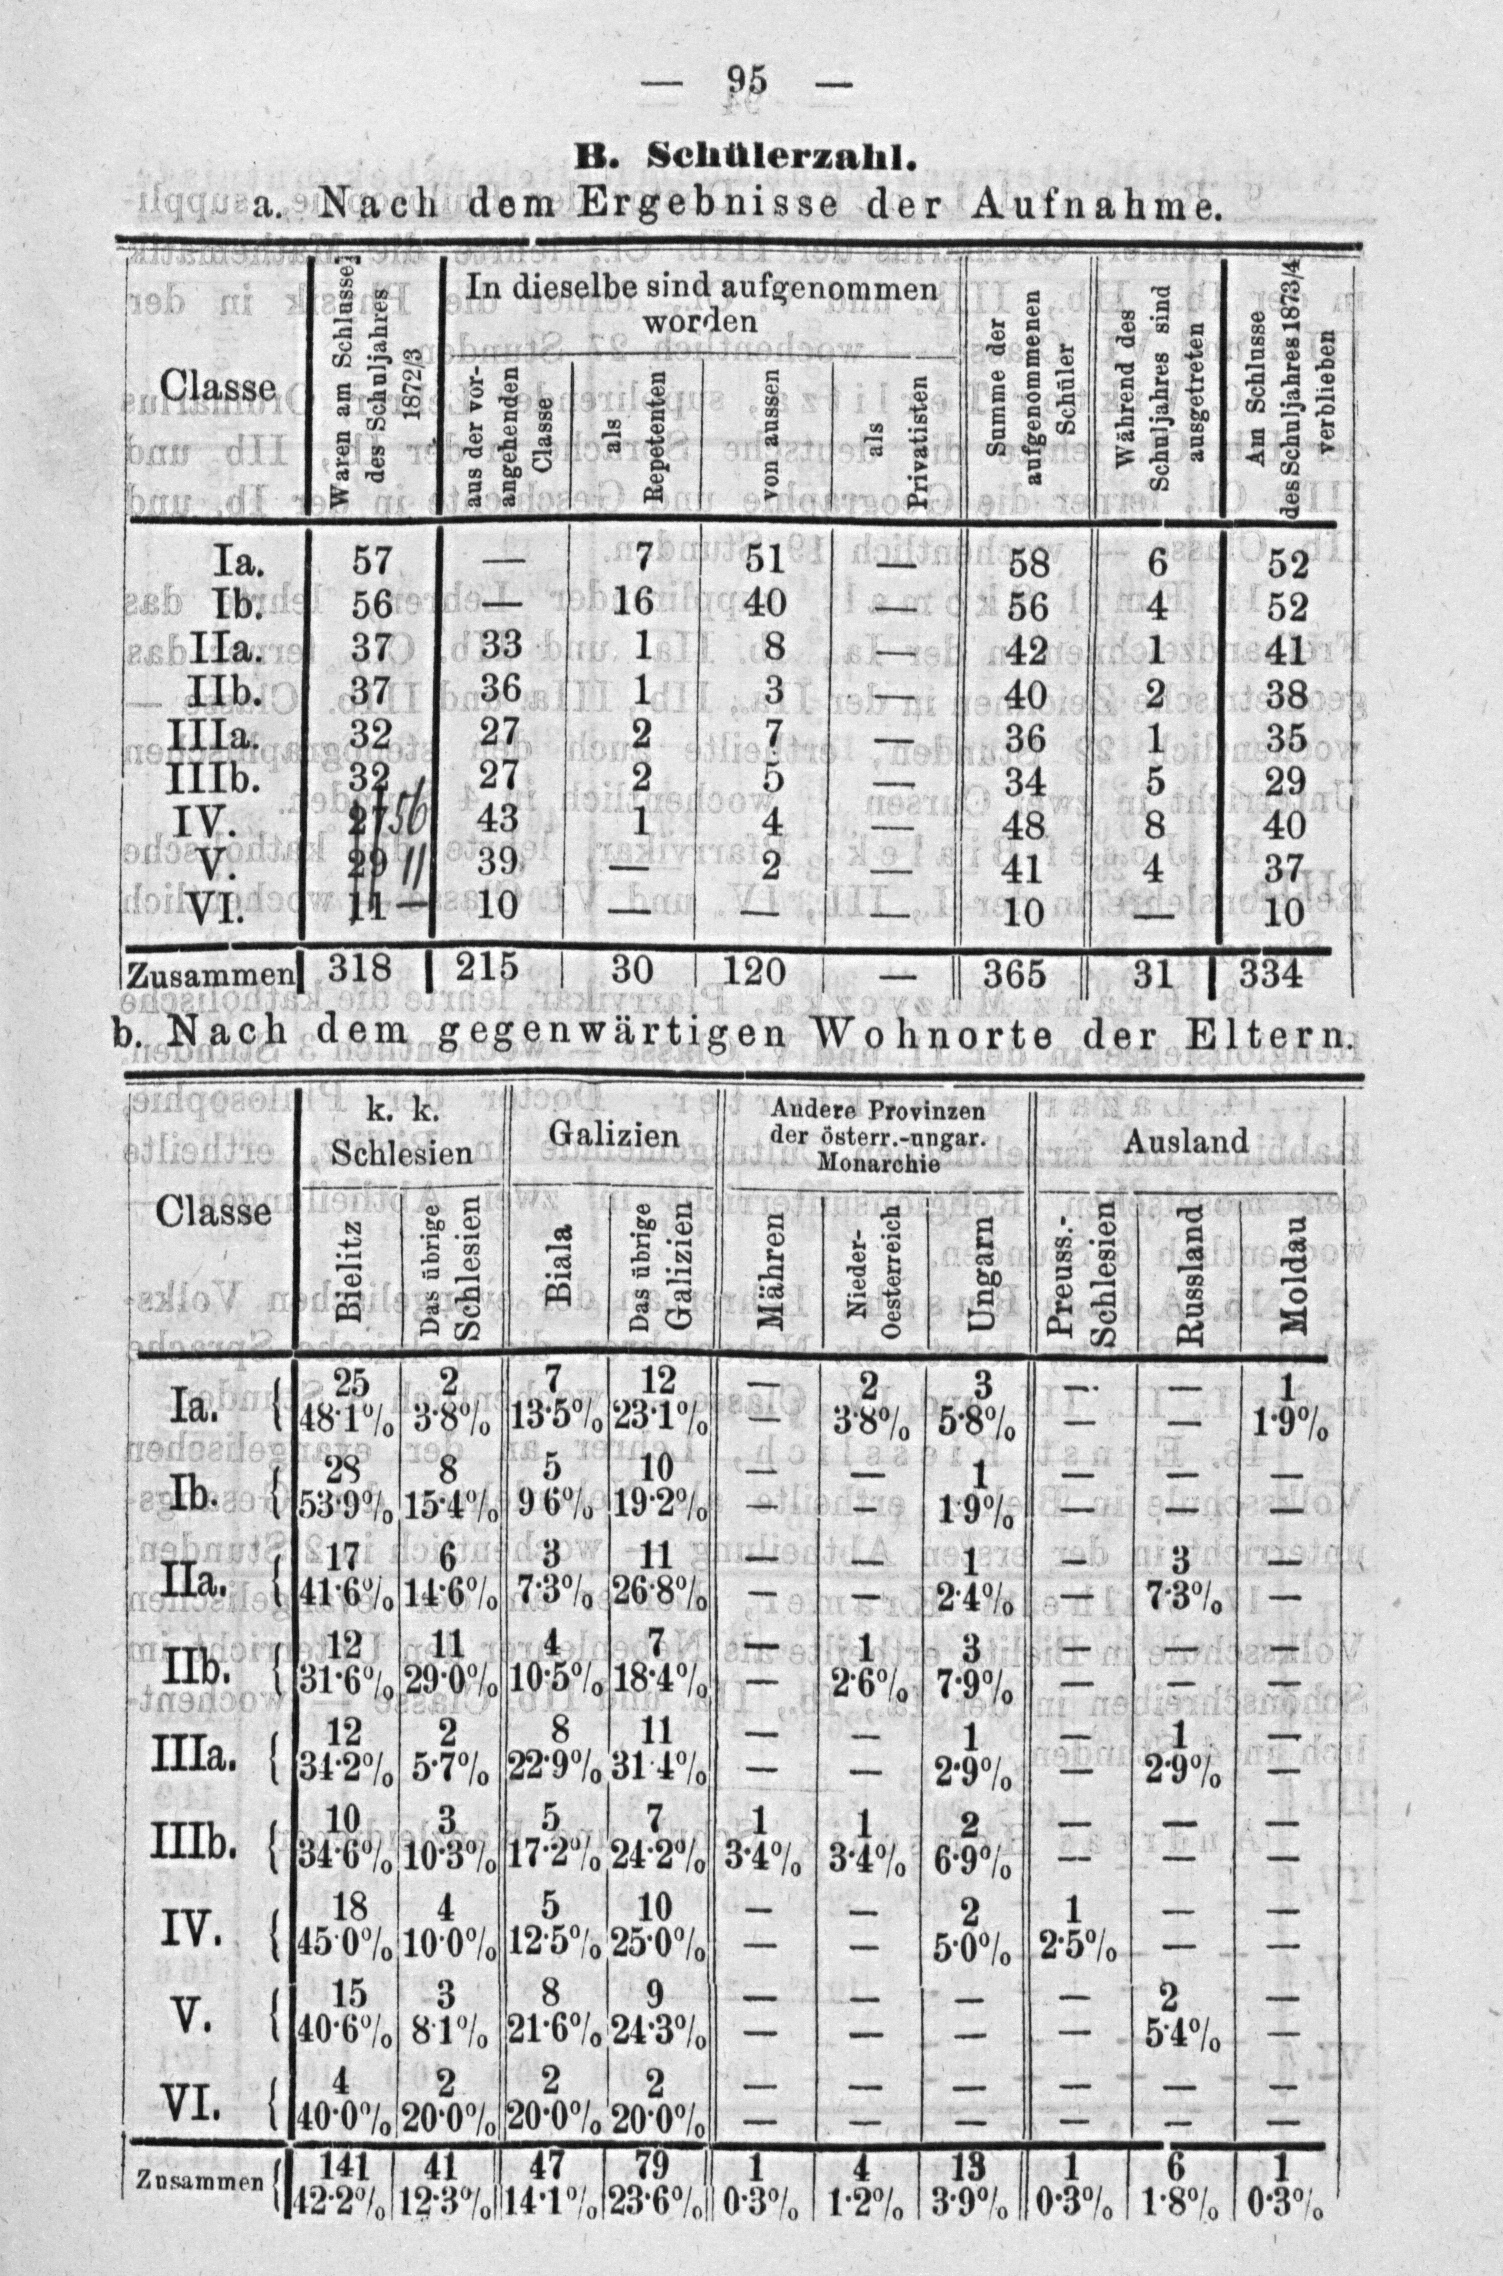 — 95 —
B. Schülerzahl.
a. Nach dem Ergebnisse der Aufnahme.
Classe
Waren am Schlusse
des Schuljahres
1872/3
In dieselbe sind aufgenommen
worden
aus der vor-
angehenden
Classe
als
Repetenten
von aussen
als
Privatisten
Summe der
aufgenommenen
Schüler
Während des
Schuljahres sind
ausgetreten
Am Schlusse
des Schuljahres 1873/4
verblieben
Ia. 57 — 7 51 — 58 6 52
Ib. 56 — 16 40 — 56 4 52
IIa. 37 33 1 8 — 42 1 41
IIb. 37 36 1 3 — 40 2 38
IIIa. 32 27 2 7 — 36 1 35
IIIb. 32 27 2 5 — 34 5 29
IV. 27 56 43 1 4 — 48 8 40
V. 29 11 39 — 2 — 41 4 37
VI. 11 — 10 — — — 10 — 10
Zusammen 318 215 30 120 — 365 31 334
b. Nach dem gegenwärtigen Wohnorte der Eltern.
Classe
k. k.
Schlesien
Galizien
Andere Provinzen
der österr.-ungar.
Monarchie
Ausland
Bielitz
Das übrige
Schlesien
Biala
Das übrige
Galizien
Mähren
Nieder-
Oesterreich
Ungarn
Preuss.-
Schlesien
Russland
Moldau
Ia. { 25 2 7 12 — 2 3 — — 1
48·1% 3·8% 13·5% 23·1% — 3·8% 5·8% — — 1·9%
Ib. { 28 8 5 10 — — 1 — — —
53·9% 15·4% 9 6% 19·2% — — 1·9% — — —
IIa. { 17 6 3 11 — — 1 — 3 —
41·6% 14·6% 7·3% 26·8% — — 2·4% — 7·3% —
IIb. { 12 11 4 7 — 1 3 — — —
31·6% 29·0% 10·5% 18·4% — 2·6% 7·9% — — —
IIIa. { 12 2 8 11 — — 1 — 1 —
34·2% 5·7% 22·9% 31·4% — — 2·9% — 2·9% —
IIIb. { 10 3 5 7 1 1 2 — — —
34·6% 10·3% 17·2% 24·2% 3·4% 3·4% 6·9% — — —
IV. { 18 4 5 10 — — 2 1 — —
45·0% 10·0% 12·5% 25·0% — — 5·0% 2·5% — —
V. { 15 3 8 9 — — — — 2 —
40·6% 8·1% 21·6% 24·3% — — — — 5·4% —
VI. { 4 2 2 2 — — — — — —
40·0% 20·0% 20·0% 20·0% — — — — — —
Zusammen { 141 41 47 79 1 4 13 1 6 1
42·2% 12·3% 14·1% 23·6% 0·3% 1·2% 3·9% 0·3% 1·8% 0·3%